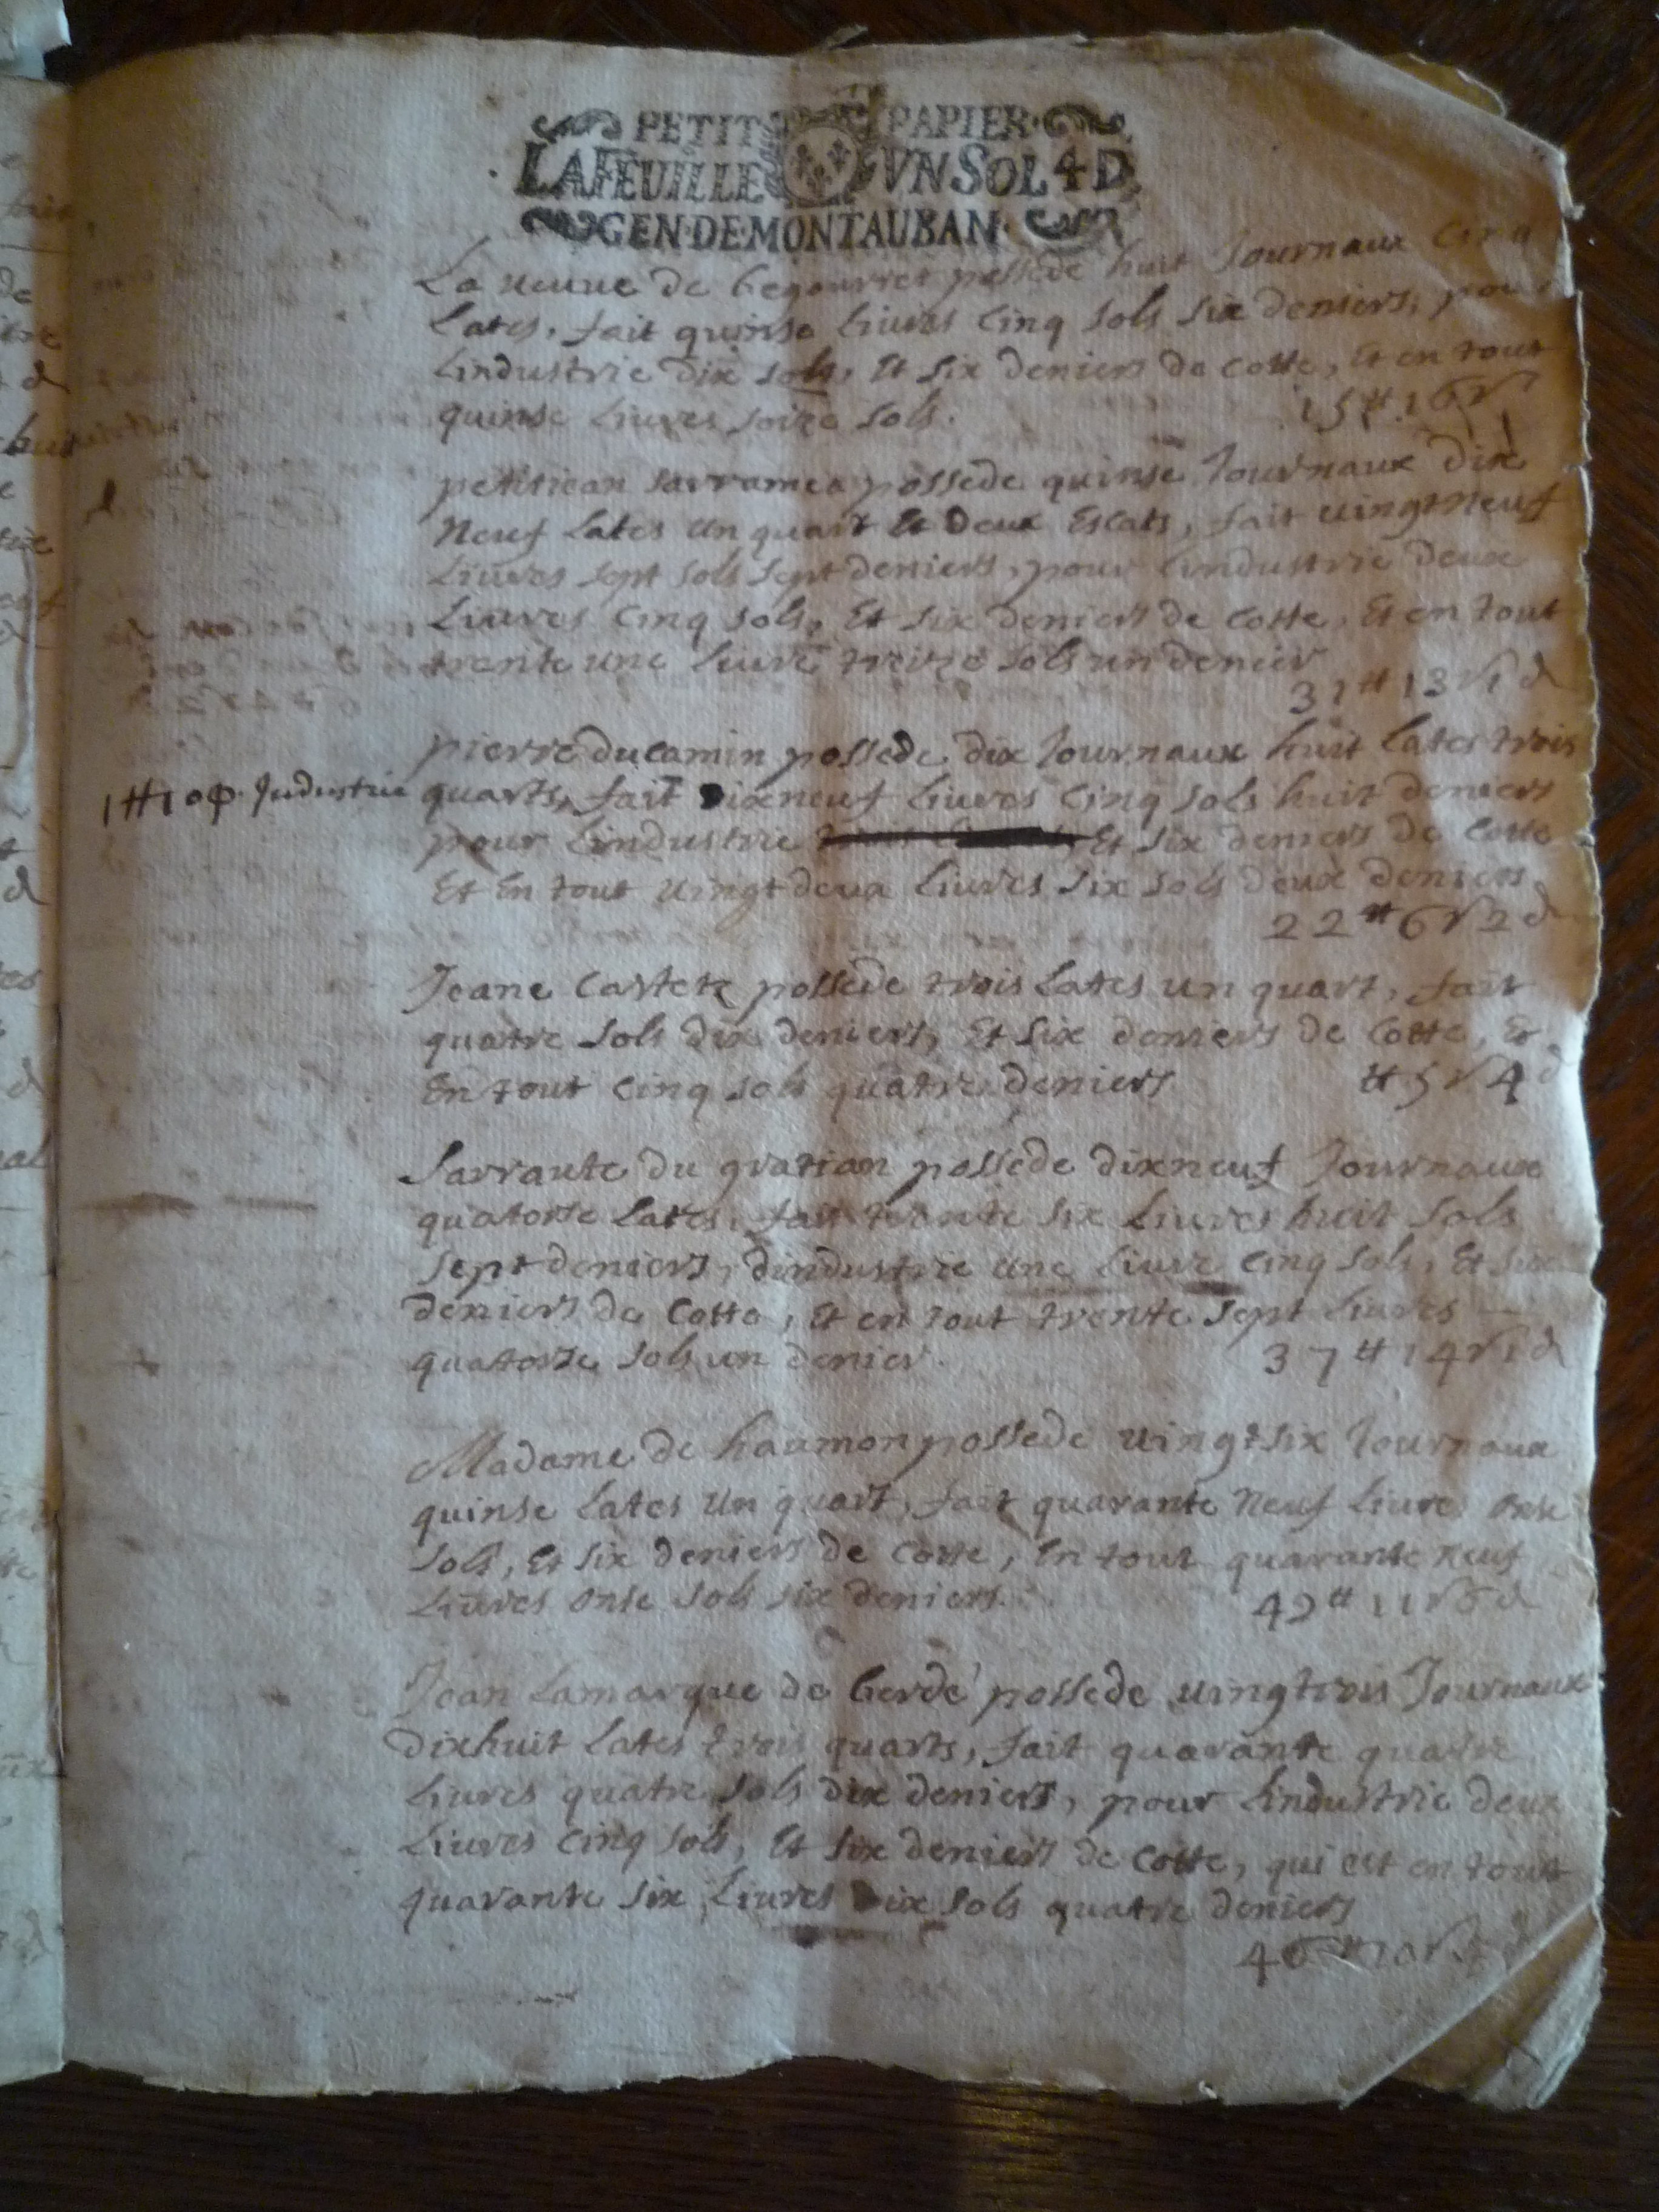 PETIT PAPIER
LA FEUILLE VN SOL 4 D
GEN·DE·MONTAUBAN·
La ueuue de begourret possede huit Journaux cinq
Lates, fait quinse liures cinq sols six deniers, pour
Lindustrie dix sols, Et six deniers de cotte, Et en tout
quinse liures soize sols.
15 ₶ 16 s
petitiean sarramea possede quinse Journaux dix
Neuf Lates un quart Et Deux Escats, fait uingtneuf
Liures sept sols sept deniers, pour Lindustrie deux
Liures Cinq sols, Et six deniers de cotte, Et en tout
trente une liure treize sols un denier
31 ₶ 13 s 1 d
pierre ducamin possede dix Journaux huit Lates trois
1 ₶ 10 Industrie
quarts, fait Dixneuf Liures Cinq sols huit deniers
pour Lindustrie Et six deniers de Cotte
Et En tout uingt deux Liures six sols deux deniers
22 ₶ 6 s 2 d
Jeane Castete possede trois Lates un quart, fait
quatre sols dix deniers, Et six deniers de Cotte, Et
En tout Cinq sols quatre deniers
₶ 5 s 4 d
Sarraute du gratian possede dixneuf Journaux
quatorse Lates, fait trente six Liures huit sols
sept deniers, dindustrie une Liure Cinq sols, Et six
deniers de Cotte, Et en tout trente sept Liures
quatorse sols un denier.
37 ₶ 14 s 1 d
Madame de haamon possede uingt six Journaux
quinse Lates Un quart, fait quarante Neuf Liures onse
sols, Et six deniers de Cotte, En tout quarante neuf
Liures onse sols six deniers.
49 ₶ 11 s 6 d
Jean Lamarque de berdé possede uingttrois Journaux
dixhuit Lates trois quarts, fait quarante quatre
Liures quatre sols dix deniers, pour Lindustrie deux
Liures Cinq sols, Et six deniers de Cotte, qui est en tout
quarante six Liures Dix sols quatre deniers
46 ₶ 10 s 4 d